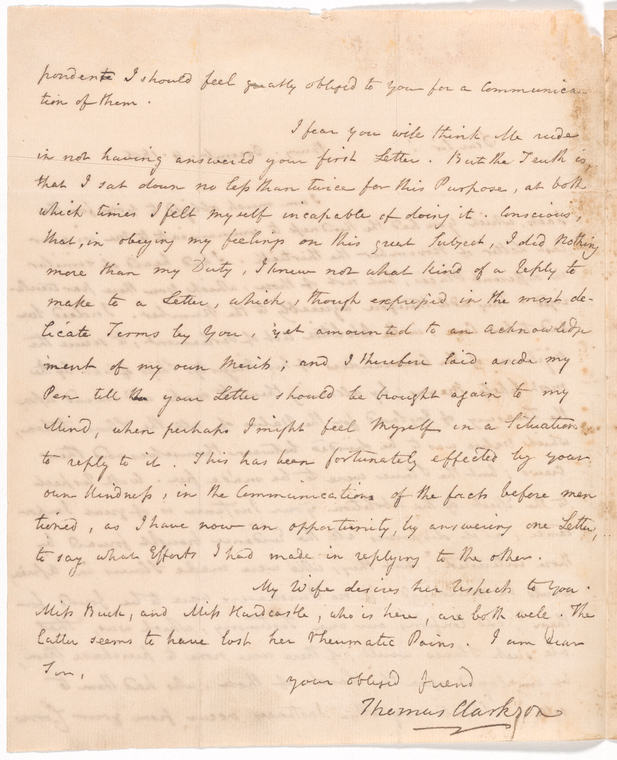 pondents I should feel greatly obliged to you for a Communica-
tion of them.
I fear you will think me rude
in not having answered your first Letter. But the Truth is,
that I sat down no less than twice for this Purpose, at both
which times I felt myself incapable of doing it. Conscious,
that, in obeying my feelings on this great Subject, I did nothing
more than my Duty, I knew not what kind of a Reply to
make to a Letter, which, though expressed in the most de-
licate Terms by you, yet amounted to an acknowledge
ment of my own Merits; and I therefore laid aside my
Pen till your Letter should be brought again to my
Mind, when perhaps I might feel myself in a Situation
to reply to it. This has been fortunately effected by your
own kindness, in the Communication of the facts before men
tioned, as I have now an opportunity, by answering one Letter,
to say what Efforts I had made in replying to the other.
My Wife desires her respects to you.
Miss Buck, and Miss Hardcastle, who is here, are both well. The
latter seems to have lost her Rheumatic Pains. I am Dear
Sir,
your obliged friend
Thomas Clarkson